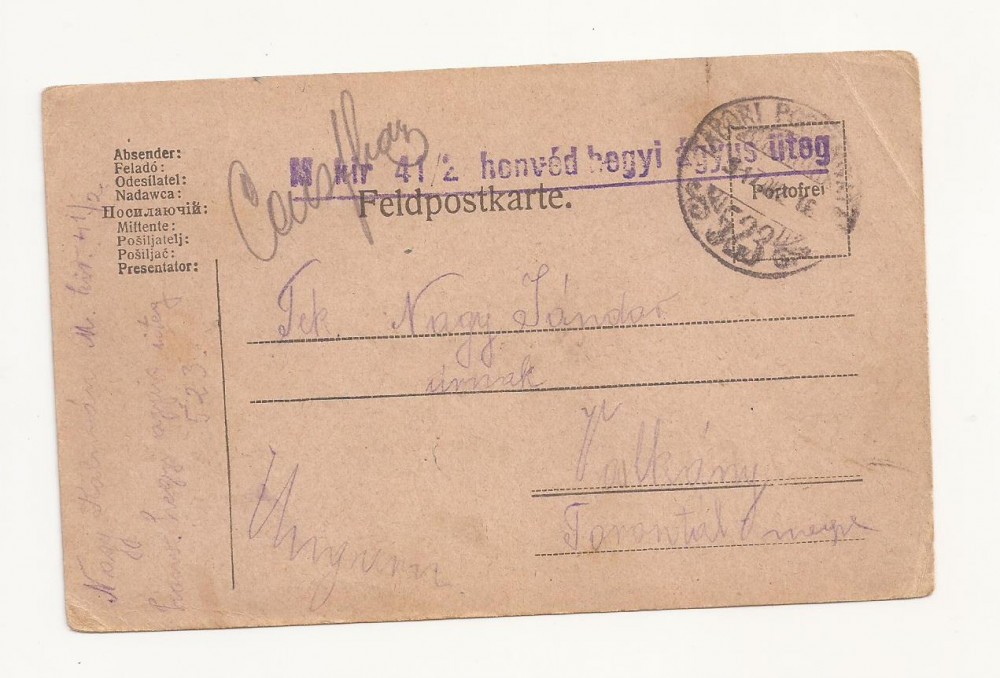 Absender:
Feladó:
Odesílatel:
Nadawca:
Носилаючій:
Mittente:
Pošiljatelj:
Pošiljač:
Presentator:
M kir 41/2 honvéd hegyi ágyus üteg
Feldpostkarte.
TÁBORI
Portofrei
Tek. Nagy Sándor
úrnak
Valkány
Torontál megye
Ungarn
Nagy Kálmán M. kir. 41/2
honv. hegyi ágyus üteg
523.